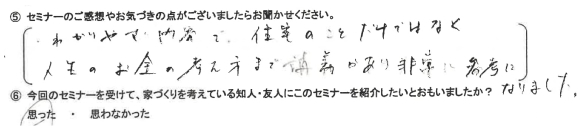 ⑤ セミナーのご感想やお気づきの点がございましたらお聞かせください。
わかりやすい内容で、住宅のことだけではなく
人生のお金の考え方まで講義があり非常に参考に
なりました。
⑥ 今回のセミナーを受けて、家づくりを考えている知人・友人にこのセミナーを紹介したいとおもいましたか？
思った ・ 思わなかった